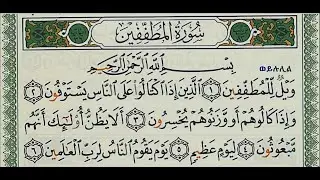 سُورَةُ المُطَفِّفِينَ
بِسْمِ اللَّهِ الرَّحْمَٰنِ الرَّحِيمِ
ወይሉሊል
وَيْلٌ لِّلْمُطَفِّفِينَ ١ الَّذِينَ إِذَا اكْتَالُوا عَلَى النَّاسِ يَسْتَوْفُونَ ٢
وَإِذَا كَالُوهُمْ أَو وَّزَنُوهُمْ يُخْسِرُونَ ٣ أَلَا يَظُنُّ أُولَٰئِكَ أَنَّهُم
مَّبْعُوثُونَ ٤ لِيَوْمٍ عَظِيمٍ ٥ يَوْمَ يَقُومُ النَّاسُ لِرَبِّ الْعَالَمِينَ ٦